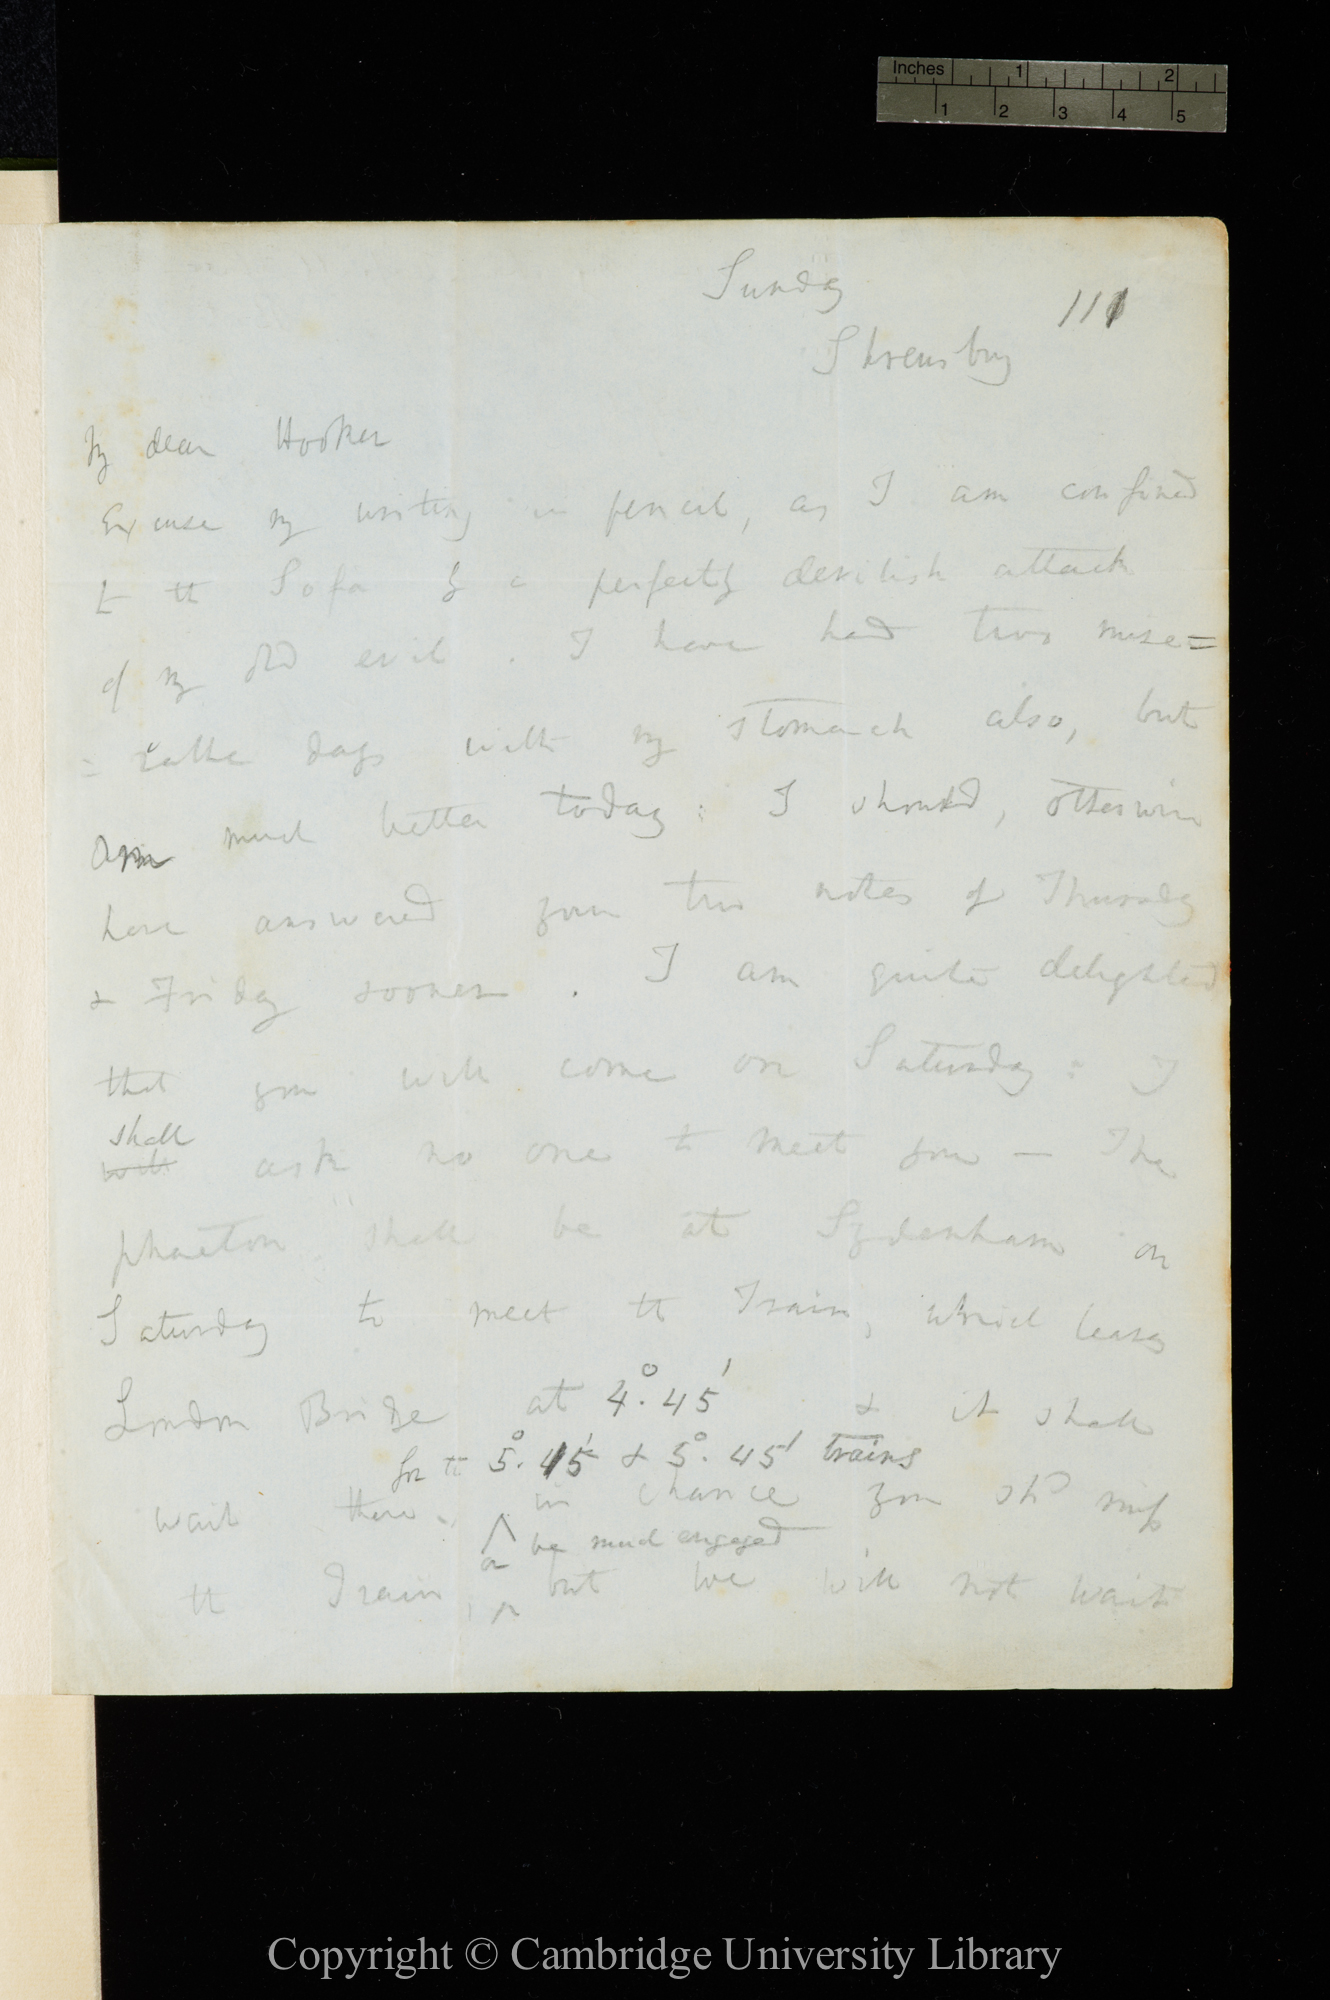 Inches 1 2
1 2 3 4 5
Sunday
111
Shrewsbury
My dear Hooker
Excuse my writing in pencil, as I am confined
to the Sofa by a perfectly devilish attack
of my old evil. I have had two mise=
=rable days with my stomach also, but
am much better today: I should, otherwise
have answered your two notes of Thursday
& Friday sooner. I am quite delighted
that you will come on Saturday: I
shall
will ask no one to meet you — The
phaeton shall be at Sydenham on
Saturday to meet the Train, which leaves
London Bridge at 4°. 45' & it shall
for the 5°. 15' & 5°. 45' trains
wait there in chance you shd miss
or be much engaged
the Train, but we will not wait
Copyright © Cambridge University Library